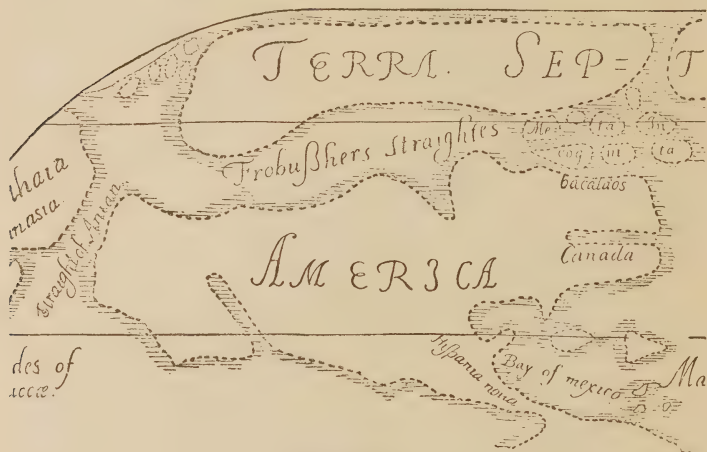 TERRA. SEP= T
Frobußhers straightes
Me ta In
cog ni ta
bacalaos
thaia
masia.
straight of Anian
Canada
AMERICA
Hispania nova
Bay of mexico
Ma
des of
uccæ.